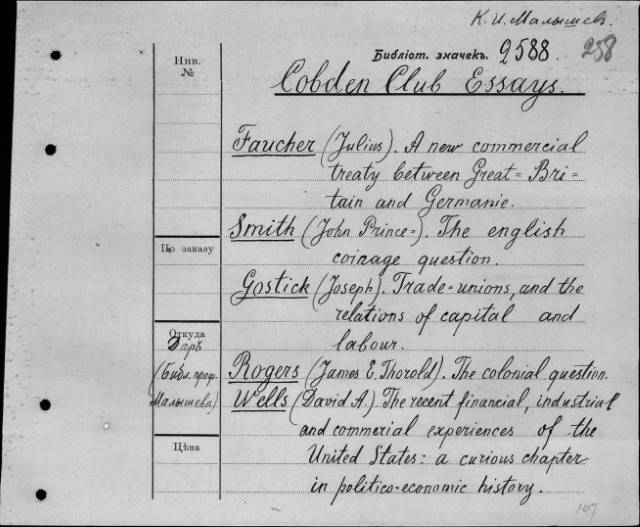 К. И. Малышев.
Библіот. значекъ. 2588. 258
Инв.
№
Cobden Club Essays.
Faucher (Julius). A new commercial
treaty between Great=Bri=
tain and Germanie.
Smith (John Prince=). The english
coinage question.
По заказу
Gostick (Joseph). Trade=unions, and the
relations of capital and
labour.
Откуда
Даръ
(Библ. проф.
Малышева)
Rogers (James E. Thorold). The colonial question.
Wells (David A.) The recent financial, industrial
and commerial experiences of the
United States: a curious chapter
in politico-economic history.
Цѣна
107